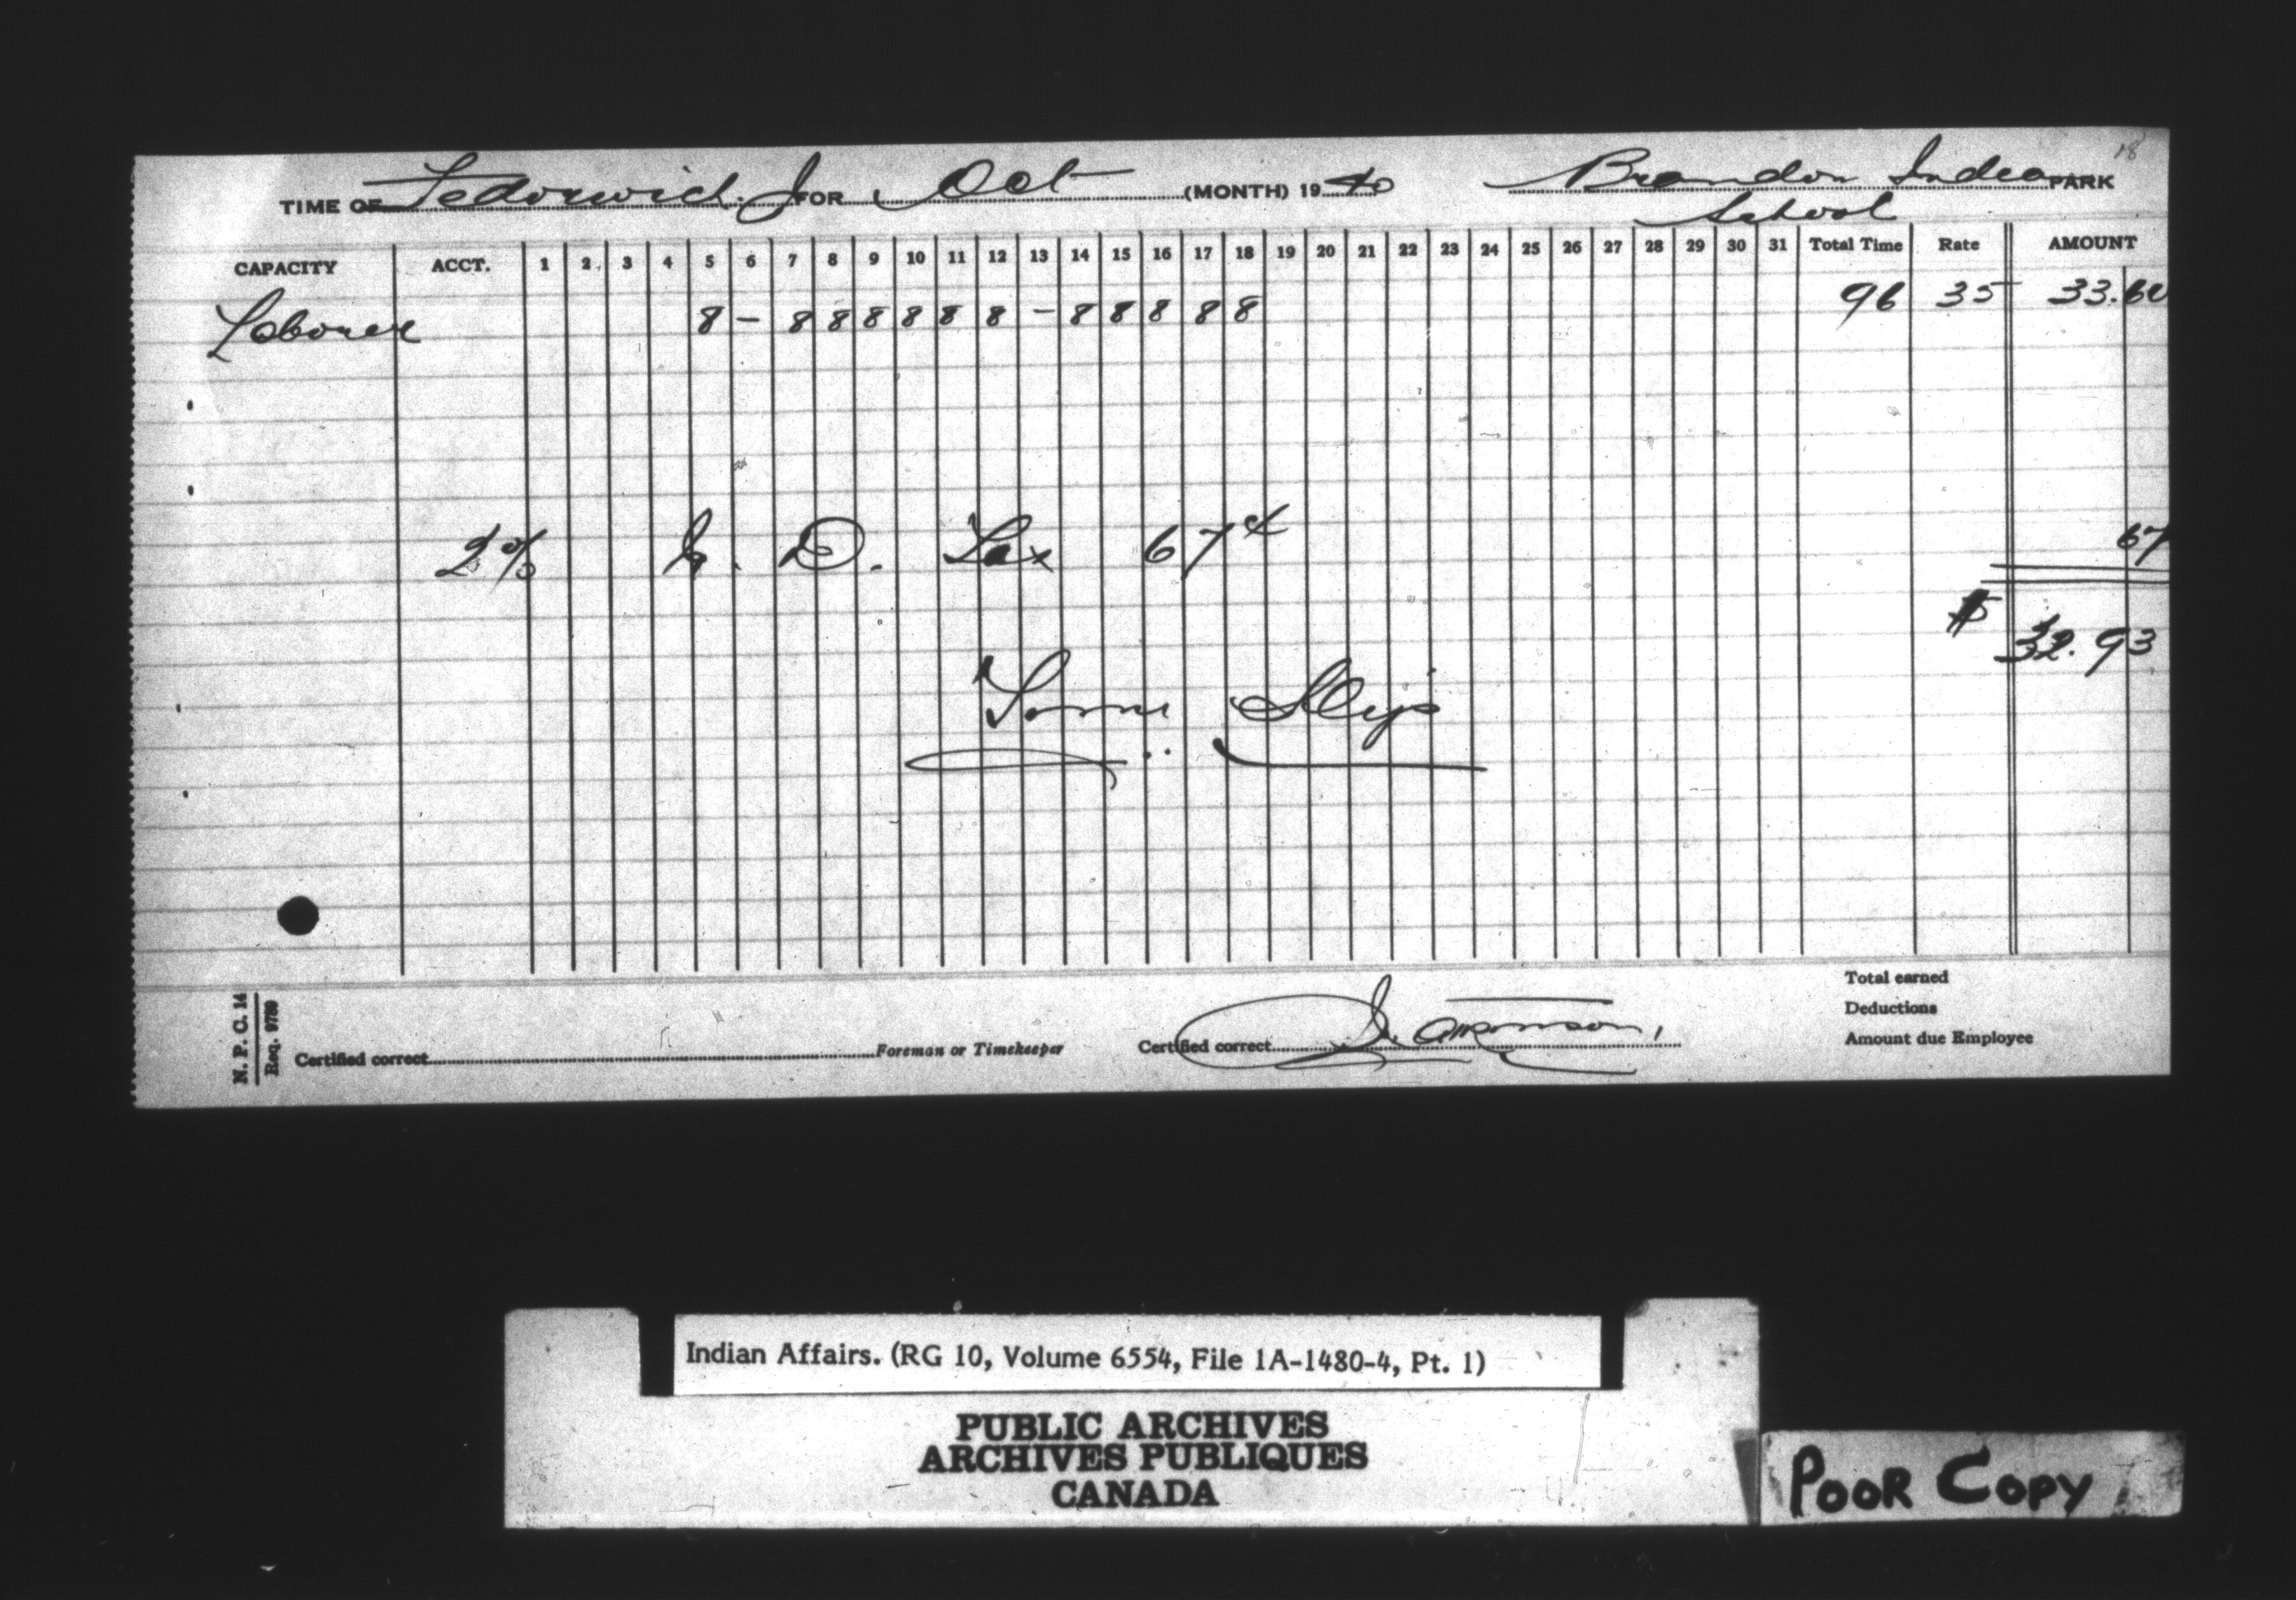 18
TIME OF Fedorwich. J FOR Oct (MONTH) 19 40 Brandon Indian PARK
School
CAPACITY ACCT. 1 2 3 4 5 6 7 8 9 10 11 12 13 14 15 16 17 18 19 20 21 22 23 24 25 26 27 28 29 30 31 Total Time Rate AMOUNT
Laborer 8 - 8 8 8 8 8 8 - 8 8 8 8 8 96 35 33.60
2% N. D. Tax 67¢ 67
$ 32.93
Certified correct Foreman or Timekeeper
Certified correct
Total earned
Deductions
Amount due Employee
N. P. C. 14
Req. 9789
Indian Affairs. (RG 10, Volume 6554, File 1A-1480-4, Pt. 1)
PUBLIC ARCHIVES
ARCHIVES PUBLIQUES
CANADA
POOR COPY